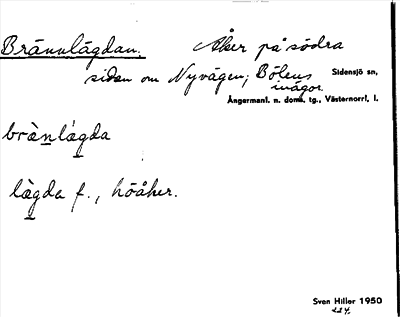 Brännlägdan. Åker på södra
sidan om Nyvägen; Bölens Sidensjö sn,
inägor.
Ångermanl. n. doms. tg., Västernorrl. l.
bränlägda
lägda f., höåker.
Sven Hiller 1950